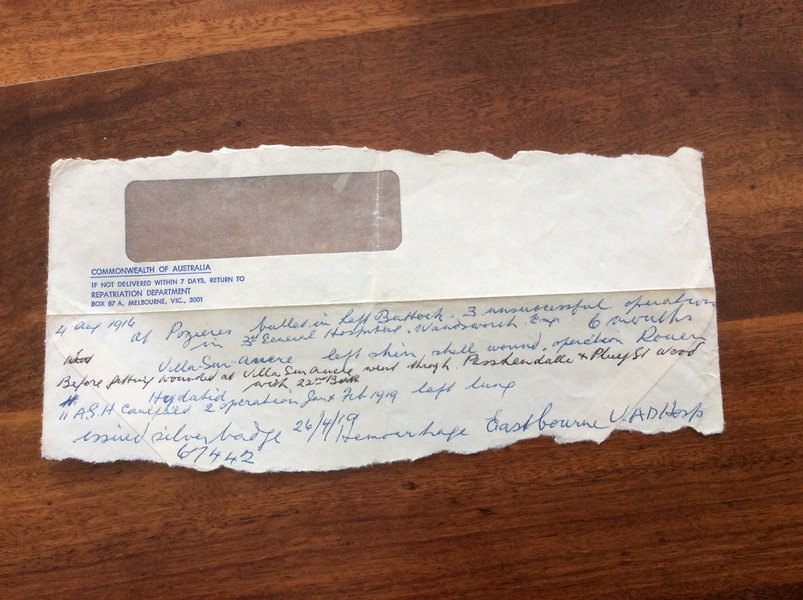 COMMONWEALTH OF AUSTRALIA
IF NOT DELIVERED WITHIN 7 DAYS, RETURN TO
REPATRIATION DEPARTMENT
BOX 87 A, MELBOURNE, VIC., 3001
4 Aug 1916 At Pozieres bullet in Left Buttock. 3 unsuccessful operation
in 3rd General Hospital. Wandsworth Eng 6 months
Villa-Sur-Ancre left shin, shell wound, operation Rouen
Before getting wounded at Villa Sur Ancre went through Passhendalle & Plug St Wood
with 22nd Batt
Hydatid
11 A.G.H Caulfield 2 operation Jan & Feb 1919 left lung
issued silver badge 26/4/19 Hemourhage Eastbourne V.A.D Hosp
67442